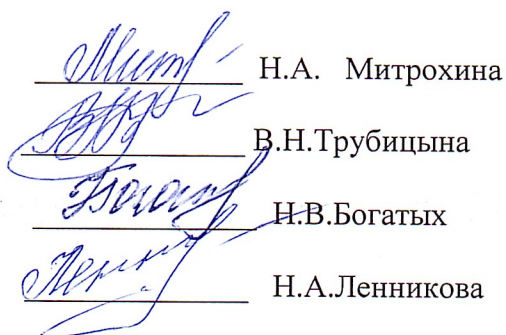 Н.А. Митрохина
В.Н.Трубицына
Н.В.Богатых
Н.А.Ленникова